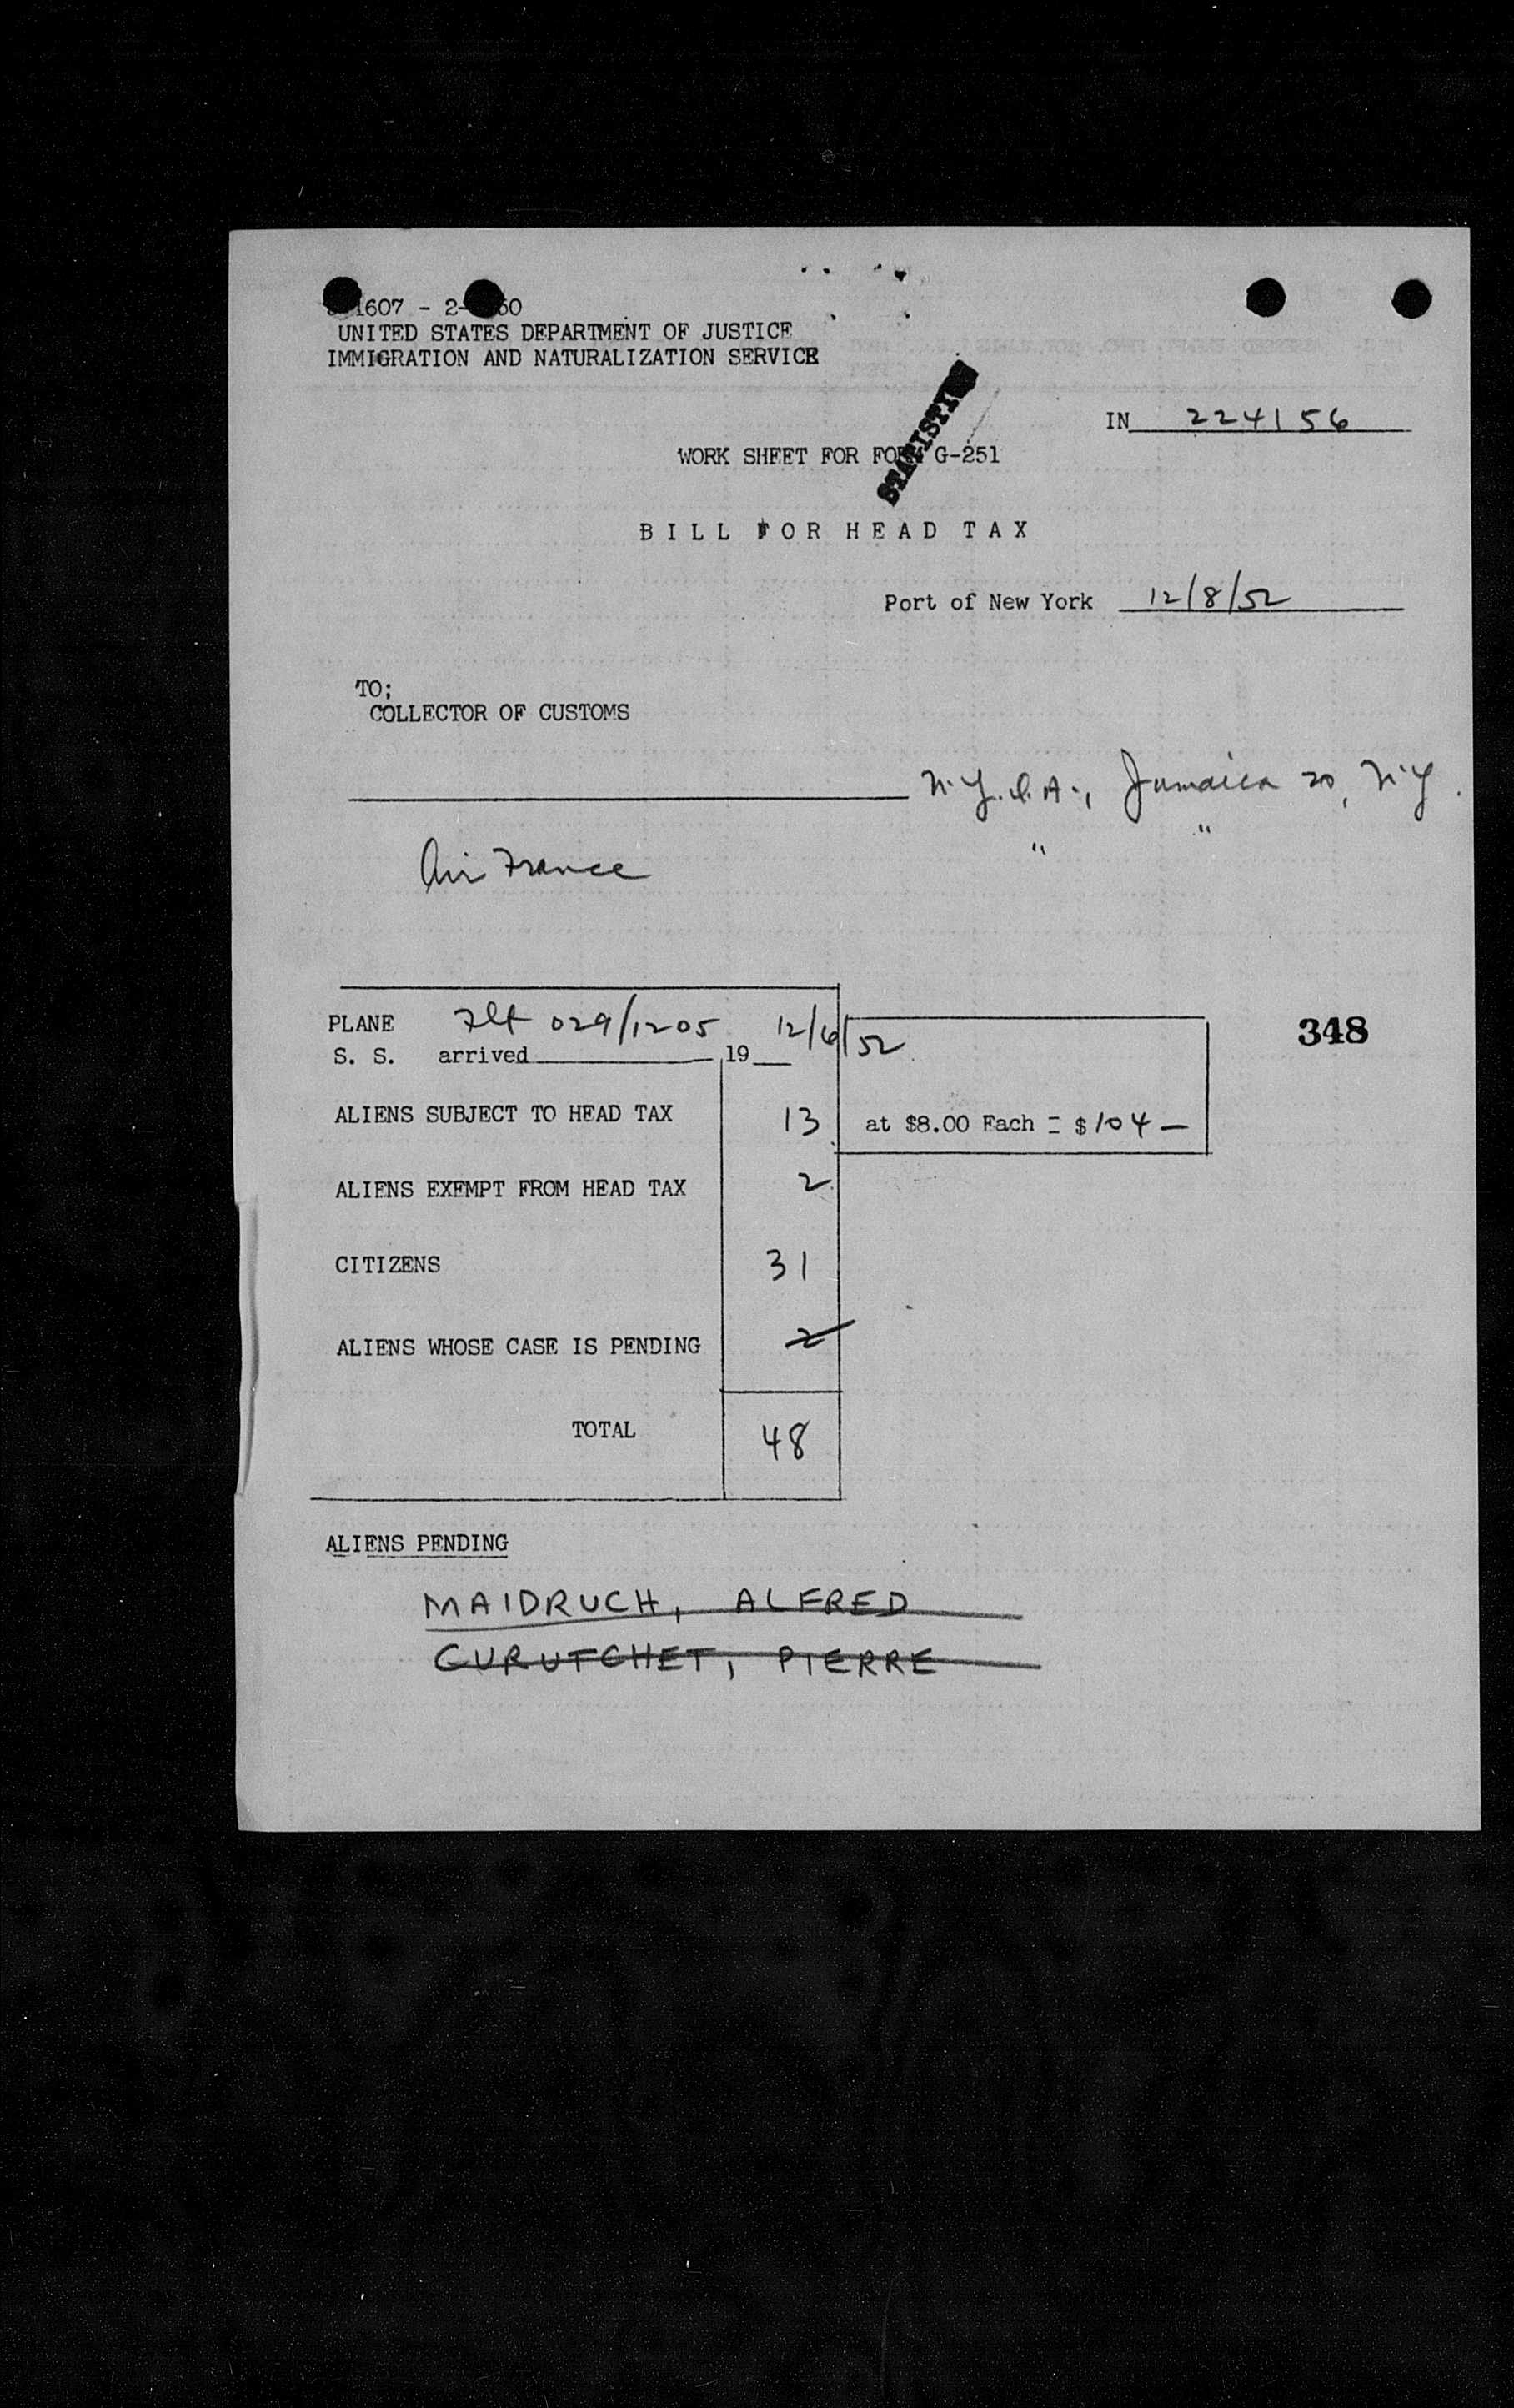 1607 - 2- 50
UNITED STATES DEPARTMENT OF JUSTICE
IMMIGRATION AND NATURALIZATION SERVICE
STATISTICS
IN 224156
WORK SHEET FOR FORM G-251
BILL FOR HEAD TAX
Port of New York 12/8/52
TO;
COLLECTOR OF CUSTOMS
N.Y.I.A., Jamaica 30, N.Y.
" "
Air France
PLANE Flt 029/1205 12/6/52
S. S. arrived 19
348
ALIENS SUBJECT TO HEAD TAX 13 at $8.00 Each = $104—
ALIENS EXEMPT FROM HEAD TAX 2
CITIZENS 31
ALIENS WHOSE CASE IS PENDING 2
TOTAL 48
ALIENS PENDING
MAIDRUCH, ALFRED
CURUTCHET, PIERRE